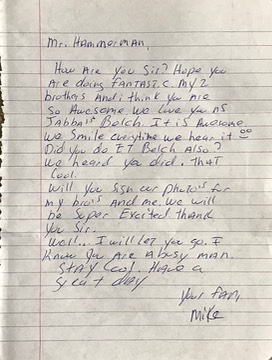 Mr. Hammerman,
How Are you Sir? Hope you
Are doing fantastic. My 2
brothers And i think you Are
So Awesome. We love you AS
Jabba's Belch. It is Awesome
We Smile everytime we hear it
Did you do ET Belch Also?
We heard you did. That
Cool.
Will you sign our photo's for
my bro's And me. We will
be Super Excited thank
you Sir.
Well... I will let you go. I
know you Are A busy man.
Stay Cool. Have a
great day
Your fan,
Mike